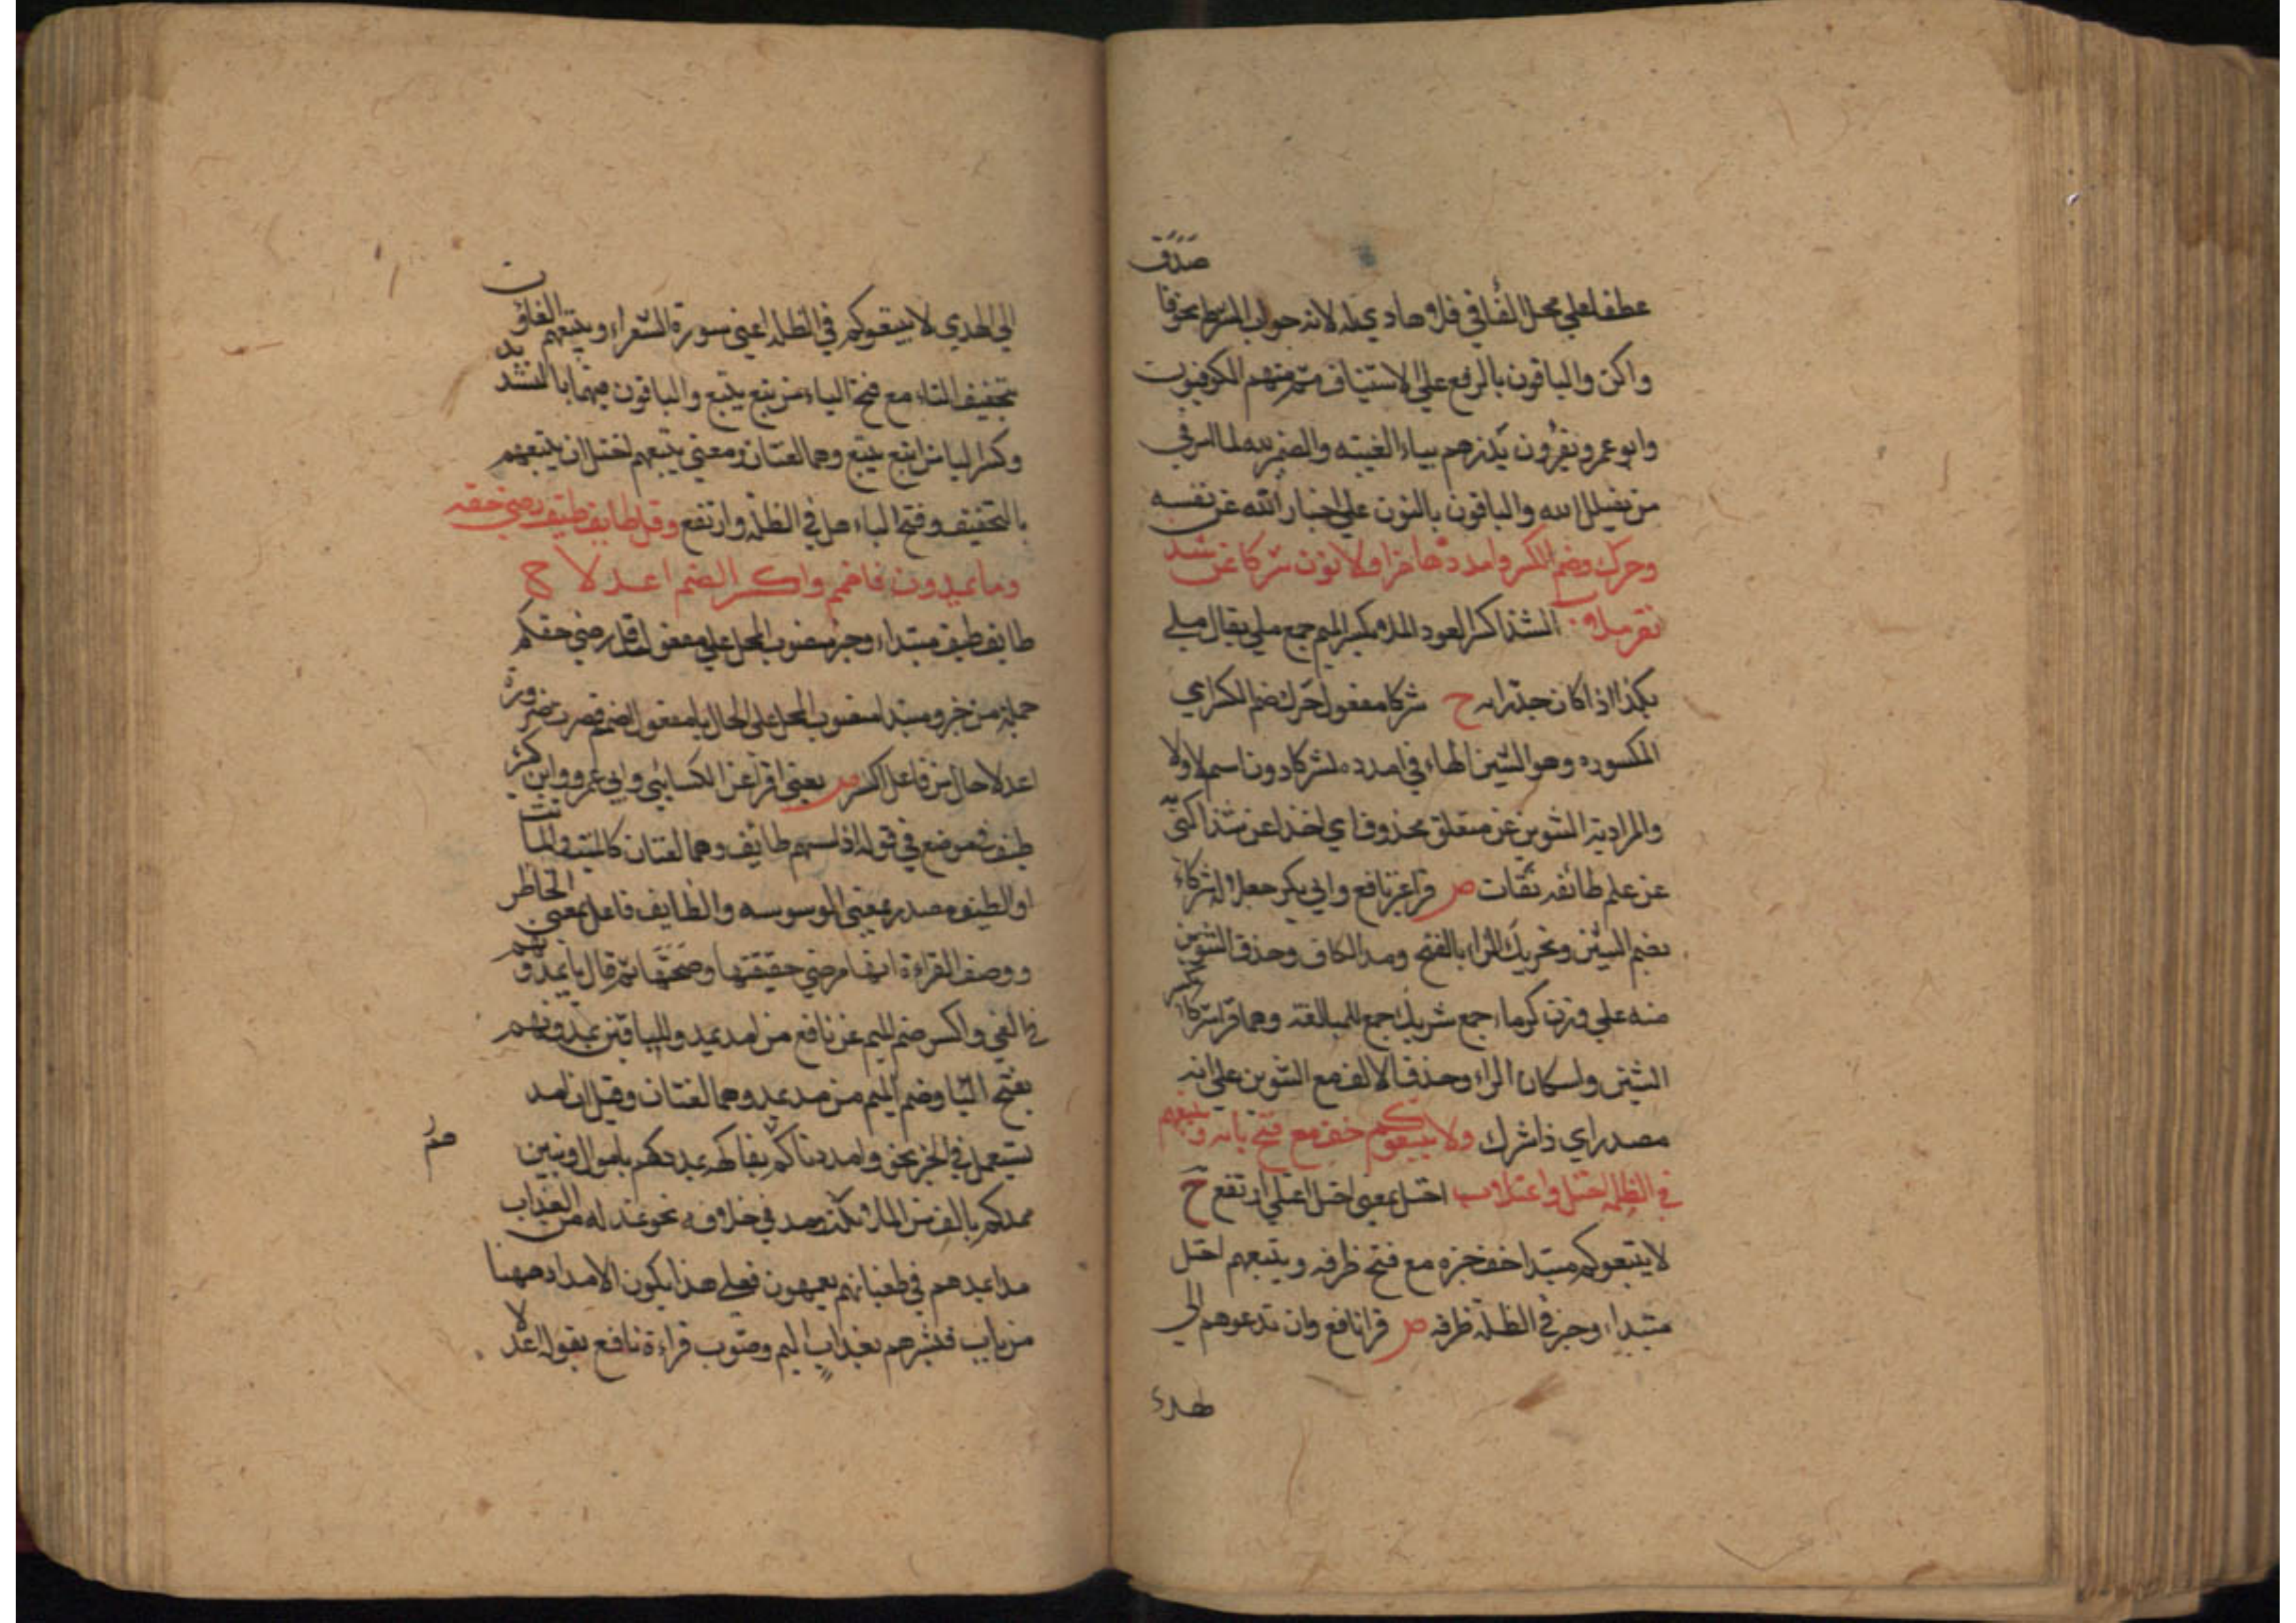 صدق
عطفا علي محل الفا في فلا هادي له لانه جواب الشرط نحو فا
واكن والباقون بالرفع علي الاستيناف ثم منهم الكوفيون
وابو عمرو يقرون يذرهم بياء الغيبه والضمير لله لما سبق في
من يضلل الله والباقون بالنون علي اخبار الله عن نفسه
وحرك وضم الكسر وامدده هامزا ولا نون شركا عن شذ
نفر ملا الشذا كسر العود الملا بكسر الميم جمع ملي يقال ملي
بكذا اذا كان جديرا به ح شركا مفعول حرك ضم الكسر اي
المكسوره وهو الشين الهاء في امدده لشركا و نون اسم لا ولا
والمراد به التنوين عن متعلق محذوف اي اخذا عن شذا كني
عن علم طائفه ثقات ص قرا غير نافع وابي بكر جعلا له شركاء
بضم الشين وتحريك الراء بالفتح ومد الكاف وحذف التنوين
منه علي وزن كرماء جمع شريك جمع للمبالغه وهما قرا شركا بكسر
الشين واسكان الراء وحذف الالف مع التنوين علي انه
مصدر اي ذا شرك ولا يتبعوكم خف مع فتح بائه ويتبعهم
في الظله احتل واعتلا ب احتل بمعني احتل اعتلي ارتفع ح
لا يتبعوكم مبتدا خف خبره مع فتح ظرفه ويتبعهم احتل
مبتداء وخبر في الظله ظرفه ص قرا نافع وان تدعوهم الي
الهدي
الي الهدي لا يتبعوكم في الظله اعني سورة الشعراء ويتبعهم الغاون
بتخفيف التاء مع فتحة الباء من تبع يتبع والباقون فيهما بالتشديد
وكسر البا من اتبع يتبع وهما لغتان ومعني يتبعهم احتل ان يتبعهم
بالتخفيف وفتح الباء حل في الظله وارتفع وقل طايف طيف رضي حقه
وما يمدون فاضمم واكسر الضم اعدلا ح
طايف طيف مبتداء وخبر منصوب المحل علي مفعول قل رضي حقكم
جملة من خبر ومبتدا منصوب المحل علي الحال يا مفعول اضمم قصرت ضرورة
اعدلا حال من فاعل اكسر ص يعني اقرا عن الكسائي وابي عمرو وابن كثير
طيف في موضع في قوله اذا مسهم طائف وهما لغتان كالميت والمائت
او الطيف مصدر بمعني الوسوسه والطايف فاعل بمعني الخاطر
ووصف القراءة انها مرضي حقيقتها وصحتها ثم قال يا يمدونهم
في الغي واكسر ضم الميم عن نافع من امد يمد وللباقين يمدونهم
بفتح اليا وضم الميم من مد يمد وهما لغتان وقيل ان امد
يستعمل في الخير نحو وامددناكم بفاكهة يمددكم باموال وبنين
ممدكم بالف من الملائكة ومد في خلافه نحو نمد له من العذاب
مدا يمدهم في طغيانهم يعمهون فعلي هذا يكون الامداد ههنا
من باب فبشرهم بعذاب اليم وصوب قراءة نافع بقوله اعدلا